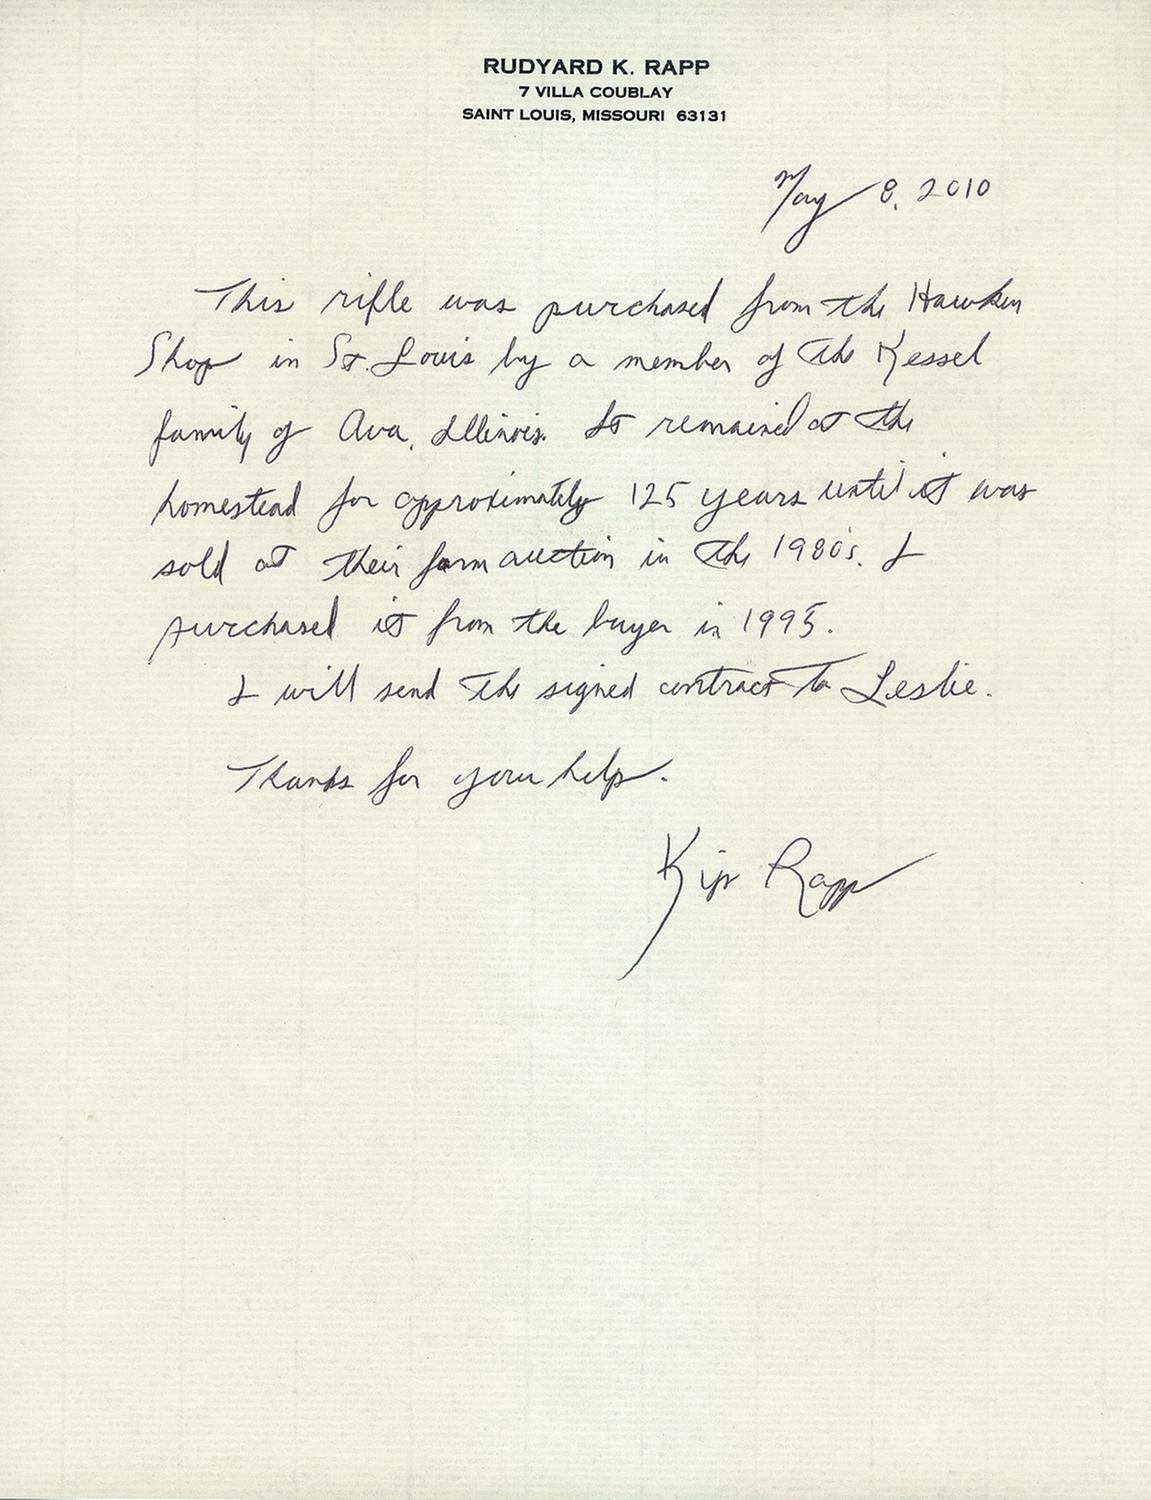 RUDYARD K. RAPP
7 VILLA COUBLAY
SAINT LOUIS, MISSOURI 63131
May 8, 2010
This rifle was purchased from the Hawken
Shop in St. Louis by a member of the Kessel
family of Ava, Illinois. It remained at the
homestead for approximately 125 years until it was
sold at their farm auction in the 1980's. I
purchased it from the buyer in 1995.
I will send the signed contract to Leslie.
Thanks for your help.
Kip Rapp